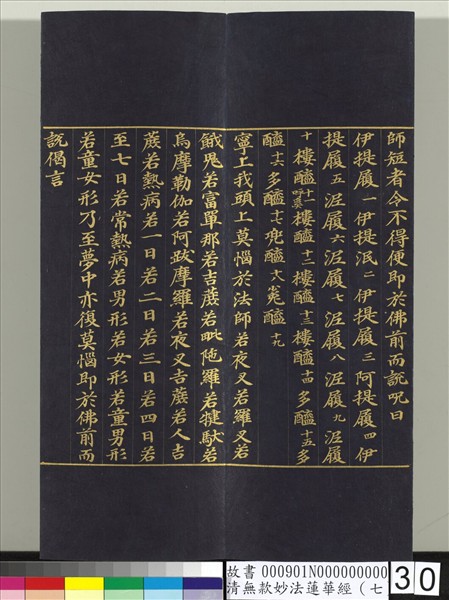 師短者令不得便即於佛前而說呪曰
伊提履一伊提泯二伊提履三阿提履四伊
提履五泥履六泥履七泥履八泥履九泥履
十樓醯十一呼奚樓醯十二樓醯十三樓醯十四多醯十五多
醯十六多醯十七兜醯十八㝹醯十九
寧上我頭上莫惱於法師若夜叉若羅叉若
餓鬼若富單那若吉蔗若毗陁羅若揵馱若
烏摩勒伽若阿跋摩羅若夜叉吉蔗若人吉
蔗若熱病若一日若二日若三日若四日若
至七日若常熱病若男形若女形若童男形
若童女形乃至夢中亦復莫惱即於佛前而
說偈言
故書 000901N000000000
清無款妙法蓮華經（七
30